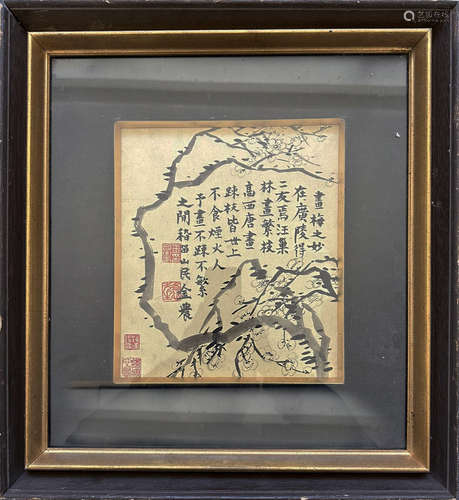 畫梅之妙
在廣陵得
二友焉汪巢
林畫繁枝
高西唐畫
踈枝皆世上
不食煙火人
予畫不踈不繁
之間稽留山民金農